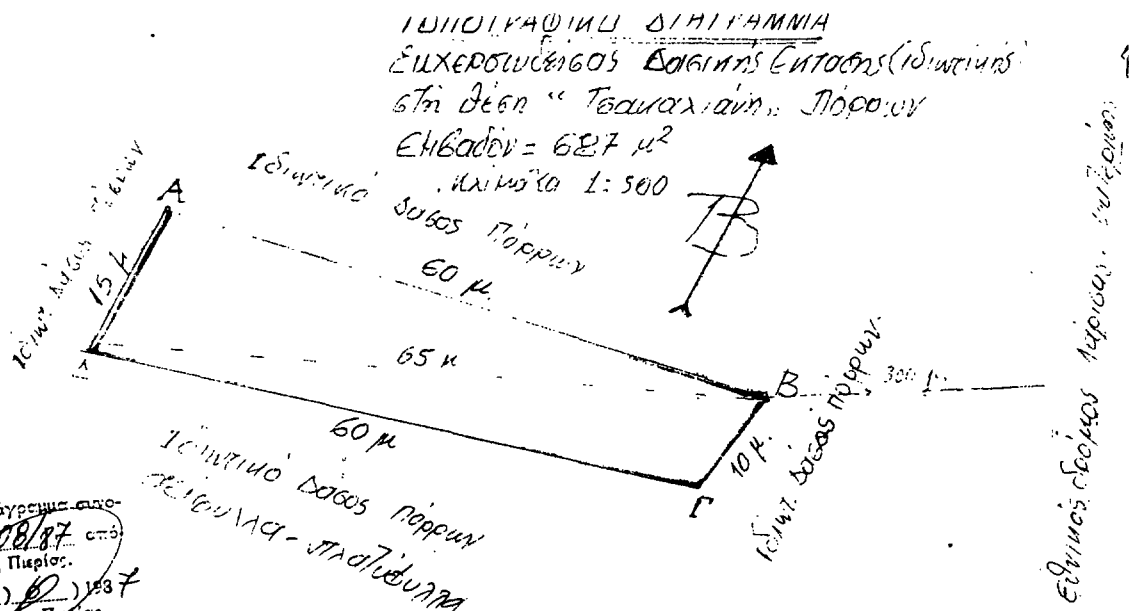 ΤΟΠΟΓΡΑΦΙΚΟ ΔΙΑΓΡΑΜΜΑ
Εκχερσωθείσας Δασικής Εκτασης (ιδιωτικής)
στη θέση "Τσακαλιάνη" Πόρρων
Εμβαδόν = 687 μ²
Κλίμακα 1:500
Ιδιωτικό Δάσος Πόρρων
Α
Β
15 μ
Ιδιωτ. Δάσος
60 μ.
65 μ
Β
300 μ.
60 μ
10 μ.
Γ
Ιδιωτ. Δάσος Πόρρων.
Ιδιωτικό Δάσος Πόρρων
αείφυλλα - πλατύφυλλα
Εθνικός δρόμος Λάρισας. Κατερίνης
08/87 από
Πιερίας.
1987